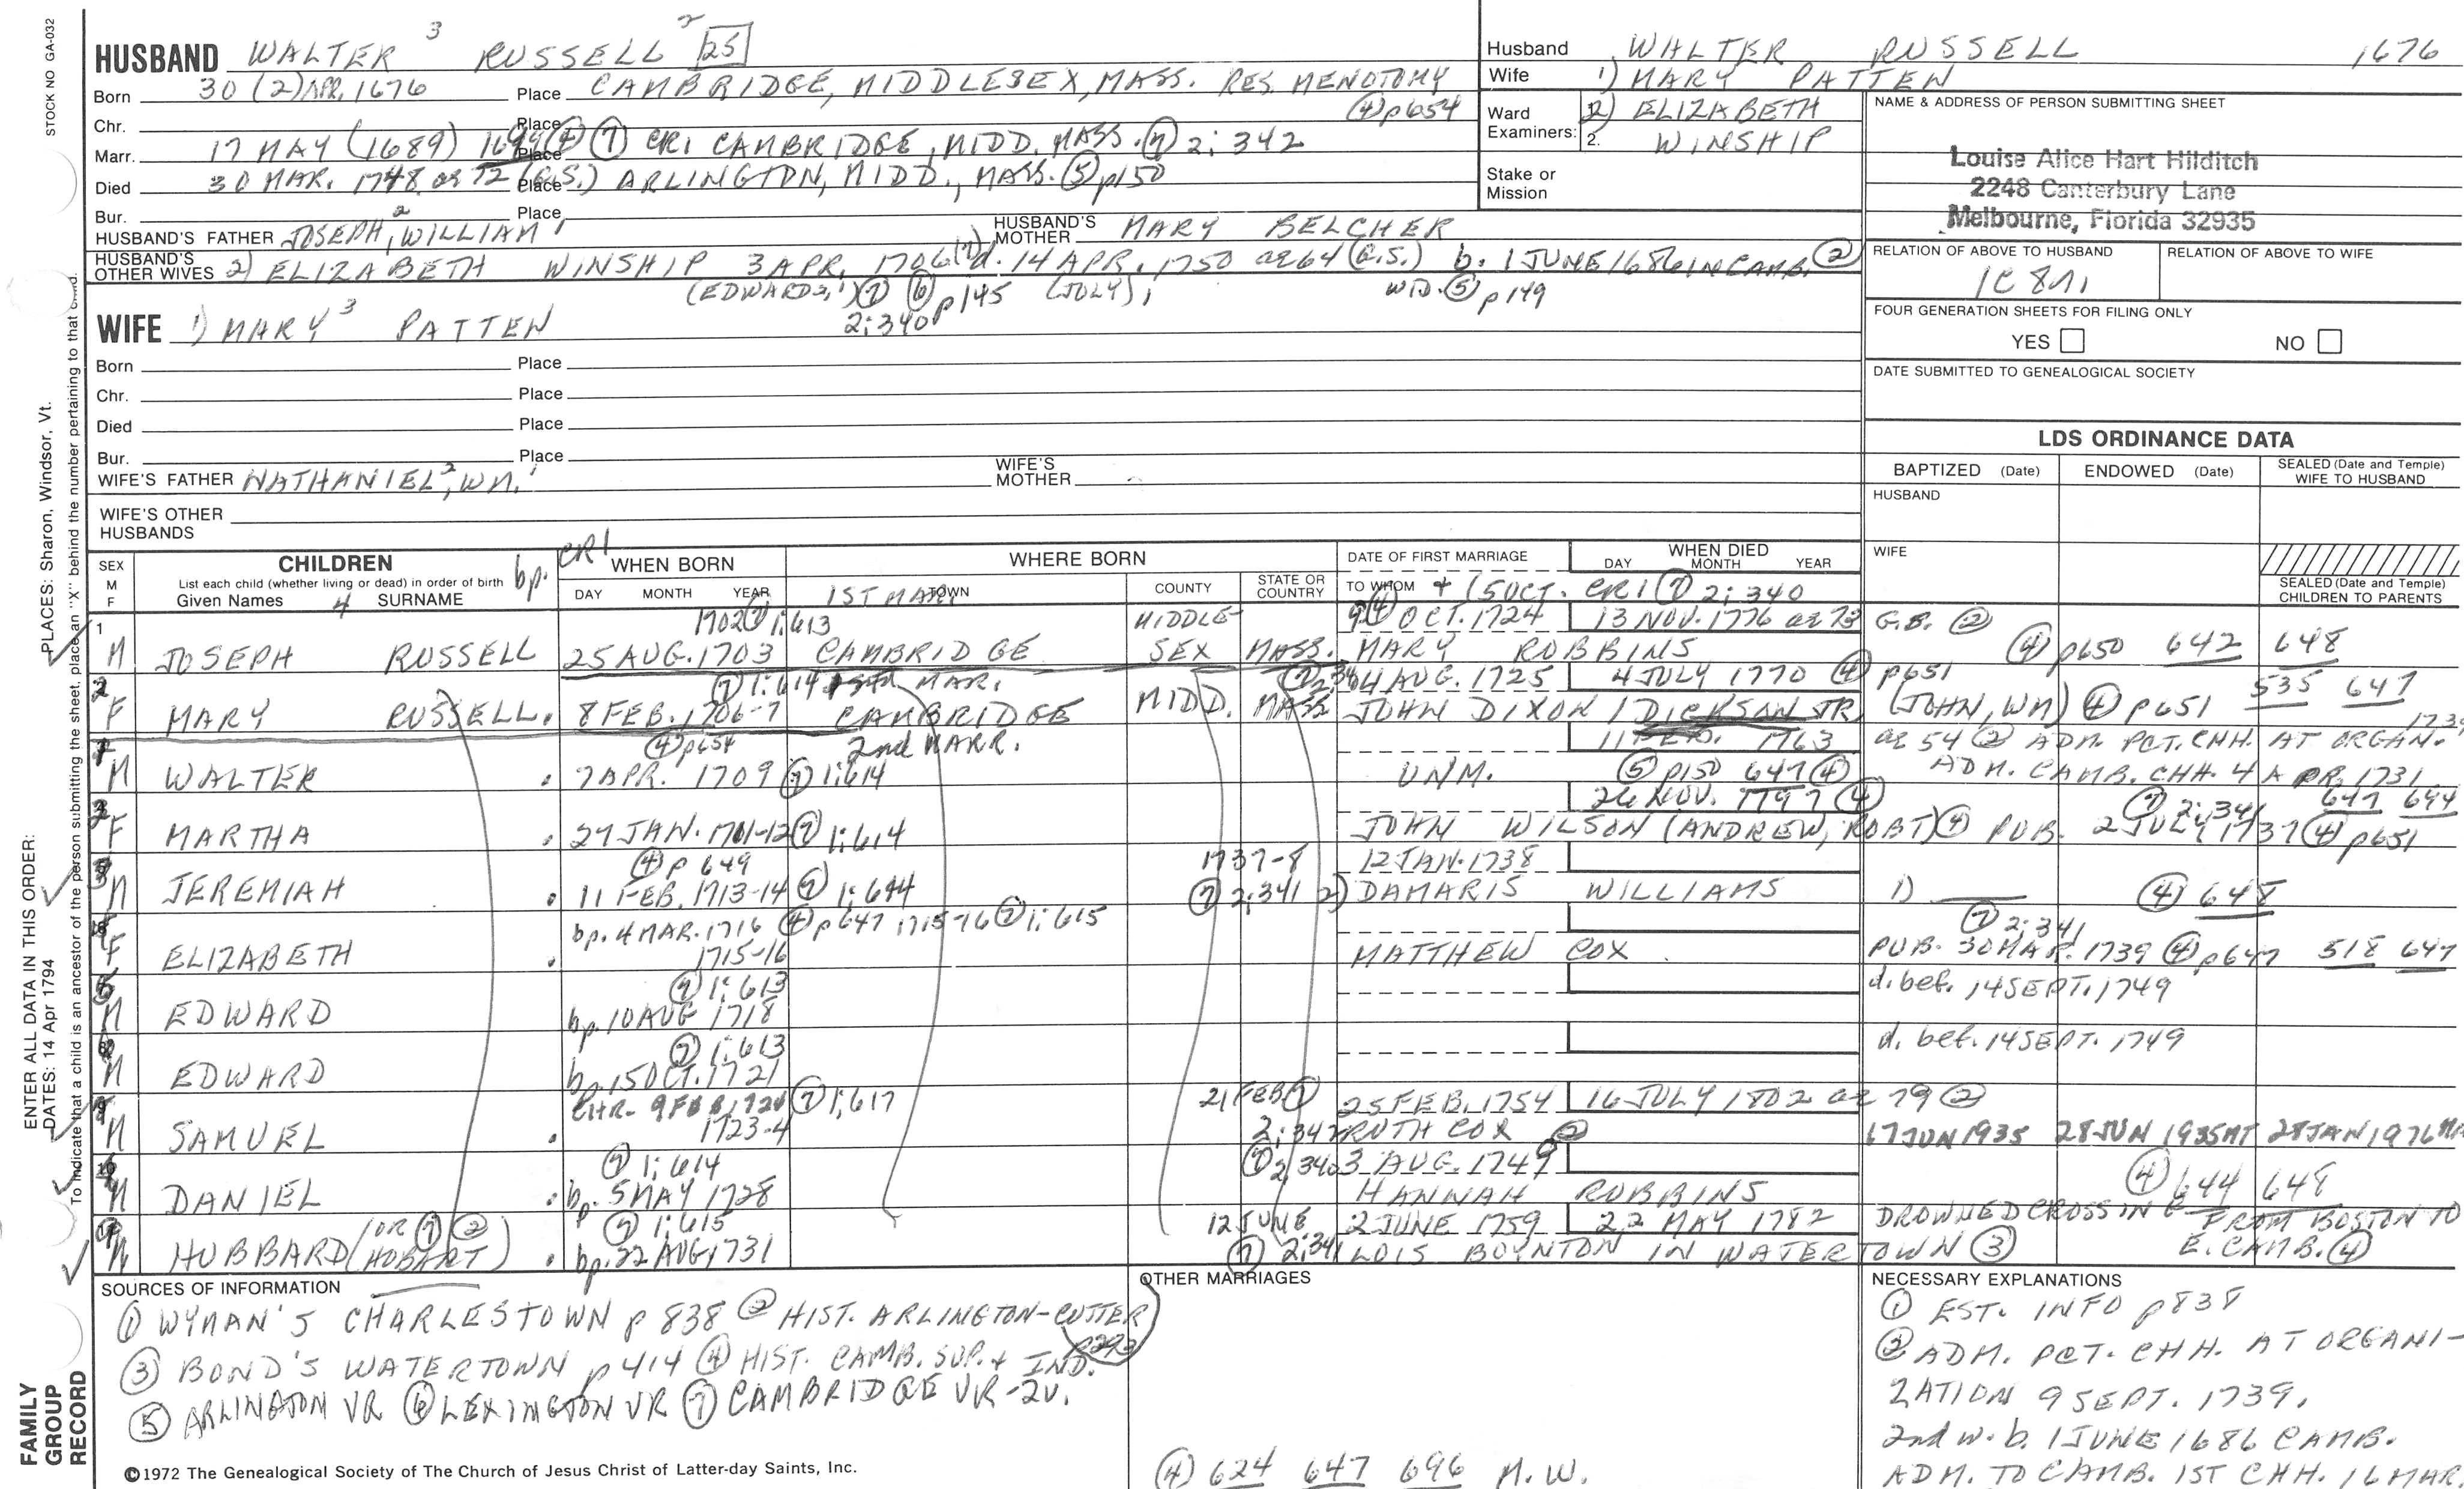 STOCK NO GA-032
PLACES: Sharon, Windsor, Vt.
ENTER ALL DATA IN THIS ORDER:
DATES: 14 Apr 1794
To indicate that a child is an ancestor of the person submitting the sheet, place an "X" behind the number pertaining to that child.
FAMILY
GROUP
RECORD
HUSBAND WALTER 3 RUSSELL 2 25
Born 30 (2) APR. 1676 Place CAMBRIDGE, MIDDLESEX, MASS. RES. MENOTOMY
④ p654
Chr. Place
Marr. 17 MAY (1689) 1699 ④ ⑦ Place CR1 CAMBRIDGE, MIDD. MASS. ⑦ 2:342
Died 30 MAR. 1748 ae 72 (G.S.) Place ARLINGTON, MIDD., MASS. ⑤ p150
Bur. Place
HUSBAND'S FATHER JOSEPH 2, WILLIAM 1 HUSBAND'S MOTHER MARY BELCHER
HUSBAND'S OTHER WIVES 2) ELIZABETH WINSHIP 3 APR. 1706 ⑦ d. 14 APR. 1750 ae 64 (G.S.) b. 1 JUNE 1686 IN CAMB. ②
(EDWARD 2, 1) ⑦ ⑥ p145 (JULY) WID. ⑤ p149
2:340
WIFE 1) MARY 3 PATTEN
Born Place
Chr. Place
Died Place
Bur. Place
WIFE'S FATHER NATHANIEL 2, WM. 1 WIFE'S MOTHER
WIFE'S OTHER HUSBANDS
Husband WALTER RUSSELL 1676
Wife 1) MARY PATTEN
Ward Examiners: 1. 2) ELIZABETH
2. WINSHIP
Stake or Mission
NAME & ADDRESS OF PERSON SUBMITTING SHEET
Louise Alice Hart Hilditch
2248 Canterbury Lane
Melbourne, Florida 32935
RELATION OF ABOVE TO HUSBAND RELATION OF ABOVE TO WIFE
1C 8R.
FOUR GENERATION SHEETS FOR FILING ONLY
YES NO
DATE SUBMITTED TO GENEALOGICAL SOCIETY
LDS ORDINANCE DATA
BAPTIZED (Date) ENDOWED (Date) SEALED (Date and Temple) WIFE TO HUSBAND
HUSBAND
WIFE
SEALED (Date and Temple) CHILDREN TO PARENTS
SEX M F CHILDREN bp. CR1 WHEN BORN WHERE BORN DATE OF FIRST MARRIAGE WHEN DIED
List each child (whether living or dead) in order of birth
Given Names 4 SURNAME DAY MONTH YEAR 1ST MAR. TOWN COUNTY STATE OR COUNTRY TO WHOM DAY MONTH YEAR
+ (5 OCT. CR1 ⑦ 2:340
1 1702 ⑦ 1:613 MIDDLE- 9 ④ OCT. 1724 13 NOV. 1776 ae 73 G.B. ②
M JOSEPH RUSSELL 25 AUG. 1703 CAMBRIDGE SEX MASS. MARY ROBBINS ④ p650 642 648
2 ⑦ 1:614 MAR. 4 AUG. 1725 4 JULY 1770 ④ p651
F MARY RUSSELL. 8 FEB. 1706-7 CAMBRIDGE MIDD. MASS JOHN DIXON / DICKSON JR (JOHN, WM) ④ p651 535 647
④ p654 2nd MARR. 11 FEB. 1763 ae 54 ② ADM. PCT. CHH. AT ORGAN. 1739
M WALTER 7 APR. 1709 ⑦ 1:614 UNM. ⑤ p150 647 ④ ADM. CAMB. CHH. 4 APR. 1731
26 NOV. 1797 ④ ⑦ 2:341 647 694
F MARTHA 27 JAN. 1711-12 ⑦ 1:614 JOHN WILSON (ANDREW, ROBT) ④ PUB. 2 JULY 1737 ④ p651
④ p 649 1737-8 12 JAN. 1738
M JEREMIAH 11 FEB. 1713-14 ⑦ 1:614 ⑦ 2:341 2) DAMARIS WILLIAMS 1) ④ 648
bp. 4 MAR. 1716 ④ p647 1715-16 ⑦ 1:615 ⑦ 2:341
F ELIZABETH 1715-16 MATTHEW COX PUB. 30 MAR. 1739 ④ p647 518 647
⑦ 1:613 d. bef. 14 SEPT. 1749
M EDWARD bp. 10 AUG 1718
⑦ 1:613 d. bef. 14 SEPT. 1749
M EDWARD bp. 15 OCT. 1721
9 CHR. 9 FEB 1724 ⑦ 1:617 21 FEB ⑦ 25 FEB. 1754 16 JULY 1802 ae 79 ②
M SAMUEL 1723-4 2:342 RUTH COX ② 17 JUN 1935 28 JUN 1935 28 JAN 1976
10 ⑦ 1:614 ⑦ 2:340 3 AUG. 1749
M DANIEL bp. 5 MAY 1728 HANNAH ROBBINS ④ 644 648
(OR ⑦ ② ⑦ 1:615 12 JUNE 2 JUNE 1759 22 MAY 1782 DROWNED CROSSING FROM BOSTON TO
M HUBBARD (HOBART) bp. 22 AUG 1731 ⑦ 2:341 LOIS BOYNTON IN WATERTOWN ③ E. CAMB. ④
SOURCES OF INFORMATION
① WYMAN'S CHARLESTOWN p 838 ② HIST. ARLINGTON-CUTTER
p293
③ BOND'S WATERTOWN p 414 ④ HIST. CAMB. SUP. + IND.
⑤ ARLINGTON VR ⑥ LEXINGTON VR ⑦ CAMBRIDGE VR-2V.
©1972 The Genealogical Society of The Church of Jesus Christ of Latter-day Saints, Inc.
OTHER MARRIAGES
④ 624 647 696 M.W.
NECESSARY EXPLANATIONS
① EST. INFO p838
② ADM. PCT. CHH. AT ORGANI-
ZATION 9 SEPT. 1739.
2nd w. b. 1 JUNE 1686 CAMB.
ADM. TO CAMB. 1ST CHH. 16 MAR.